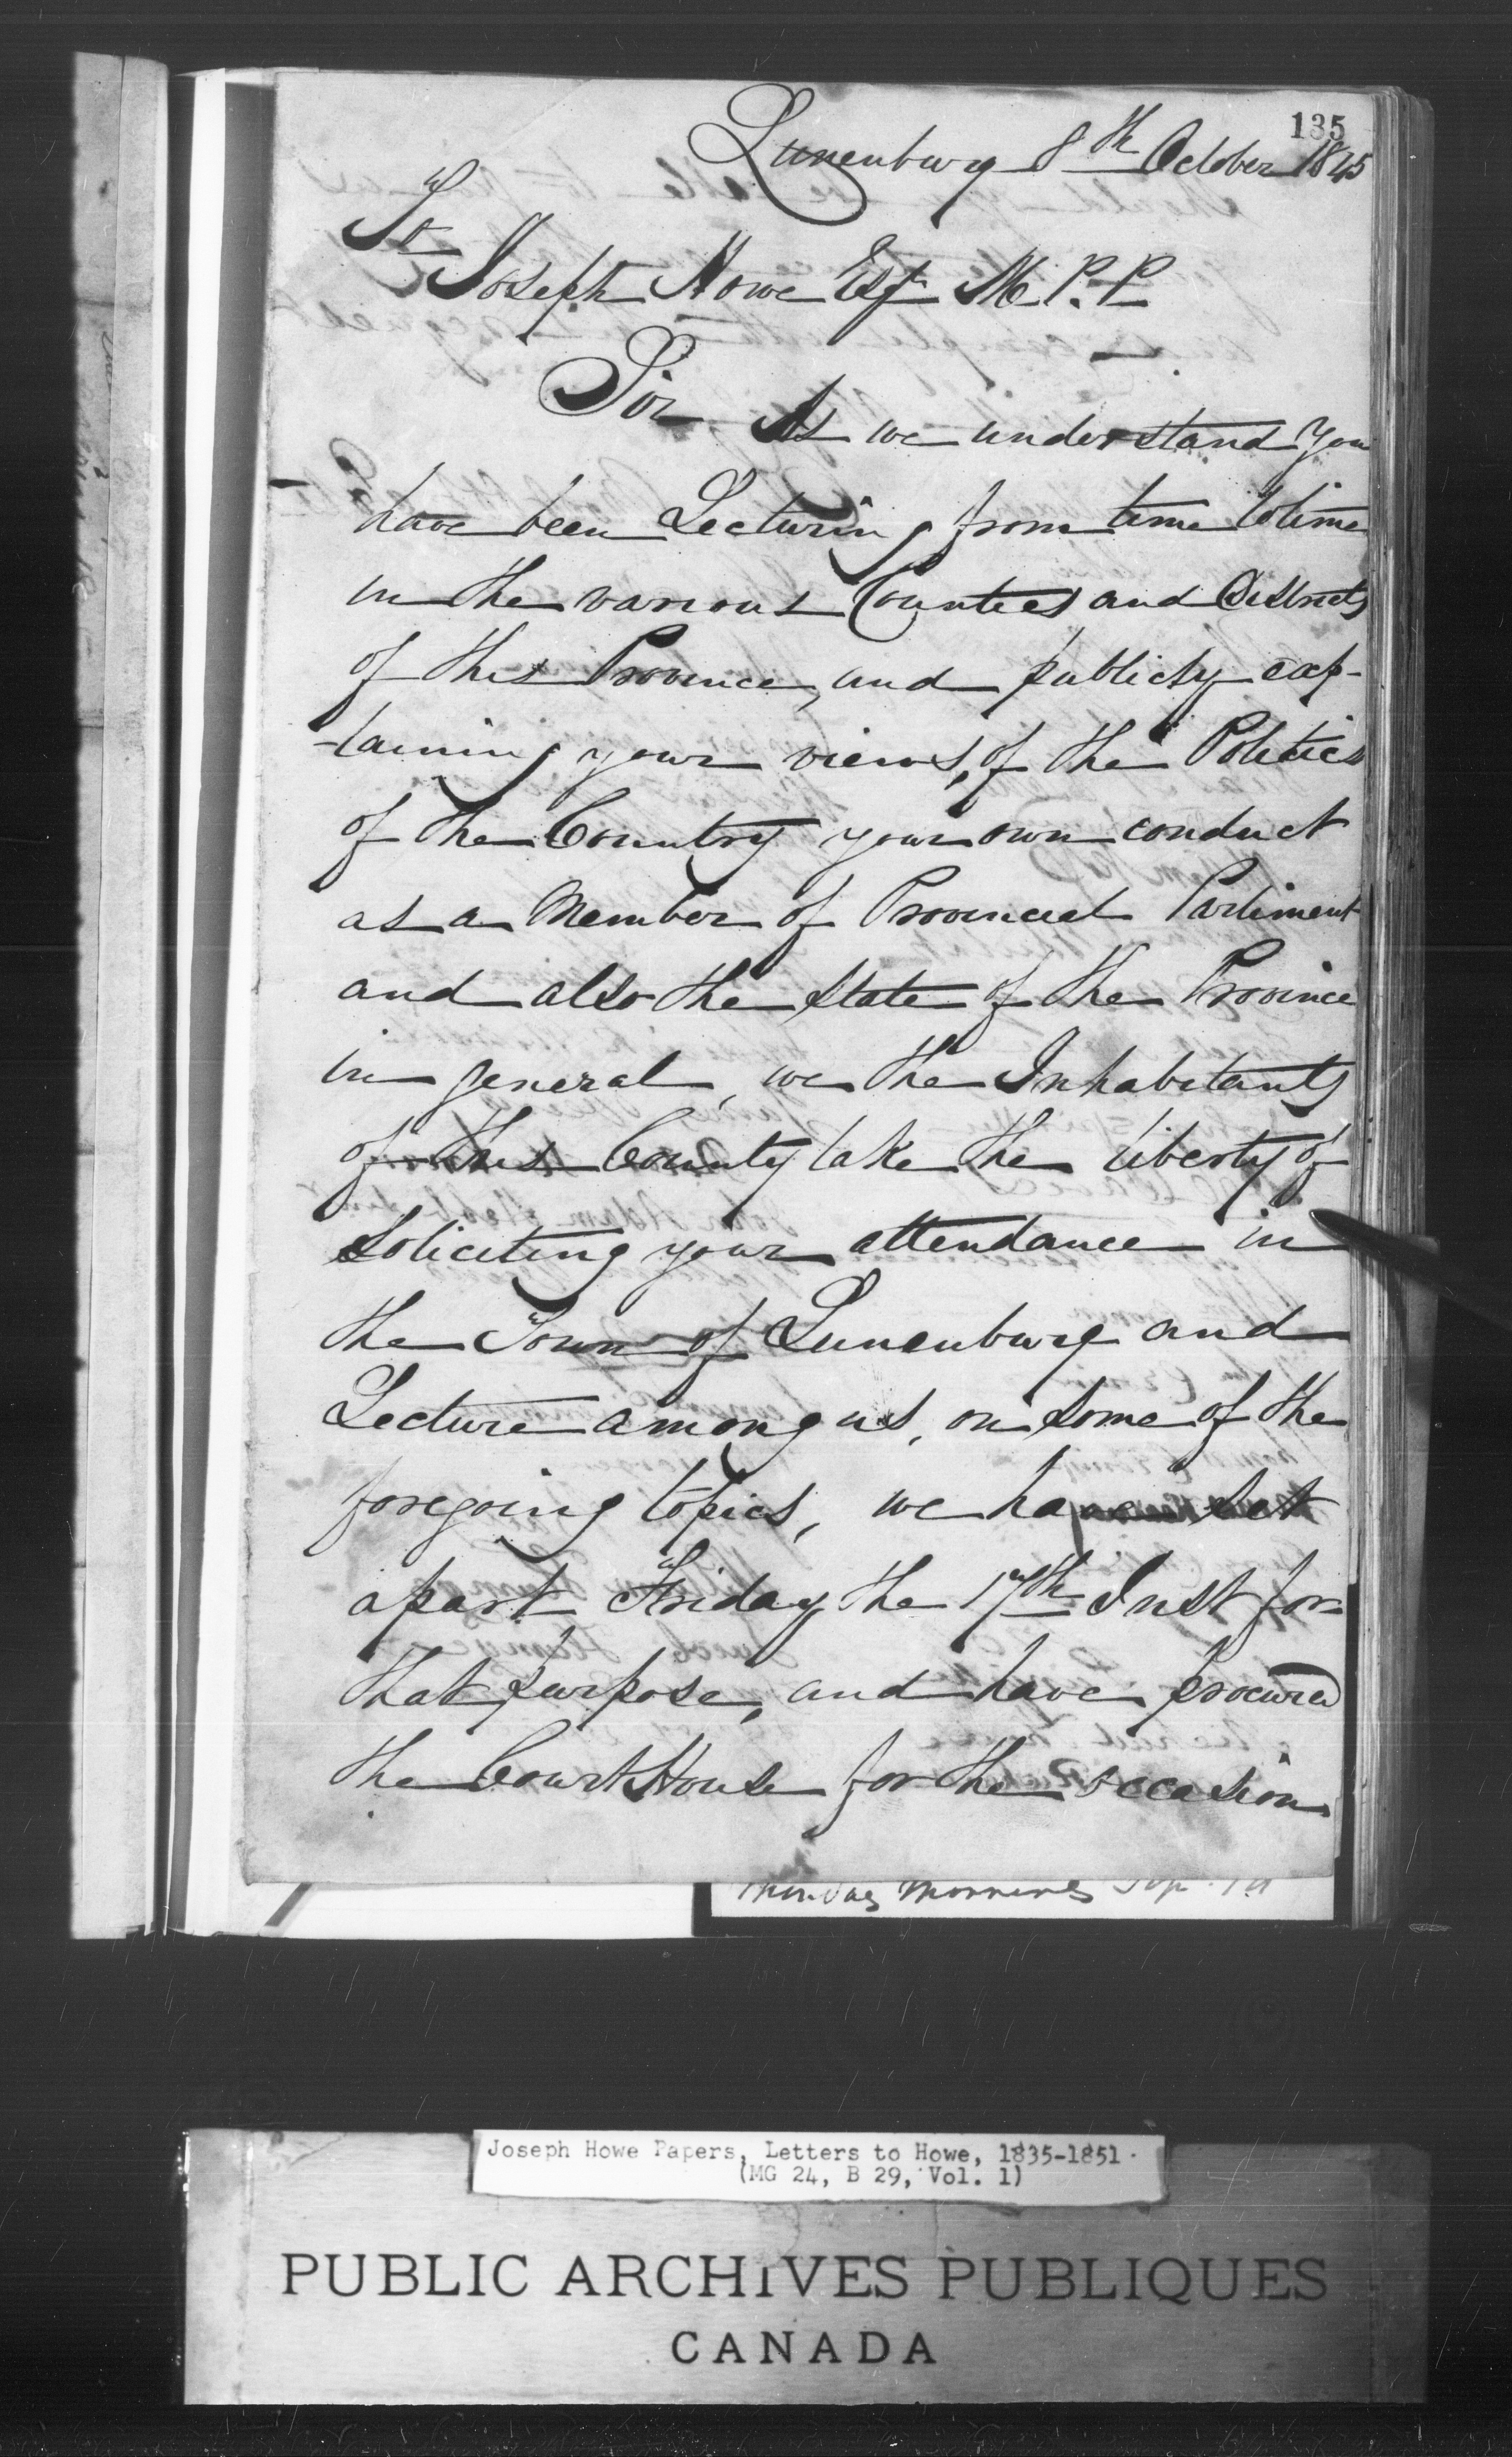 135
Lunenburg 8th October 1845
To
Joseph Howe Esqr M.P.P.
Sir As we understand you
have been Lecturing from time to time
in the various Counties and Districts
of this Province, and publicly exp-
-laining your views, of the Politics
of the Country your own conduct
as a Member of Provincial Parliment
and also the State of the Province
in general, we the Inhabitants
of this County take the liberty of
Soliciting your attendance in
the Town of Lunenburg and
Lecture among us, on some of the
foregoing topics, we have set
apart Friday the 17th Inst for
that purpose, and have procured
the Court House for the occasion
Morning
Joseph Howe Papers, Letters to Howe, 1835-1851.
(MG 24, B 29, Vol. 1)
PUBLIC ARCHIVES PUBLIQUES
CANADA